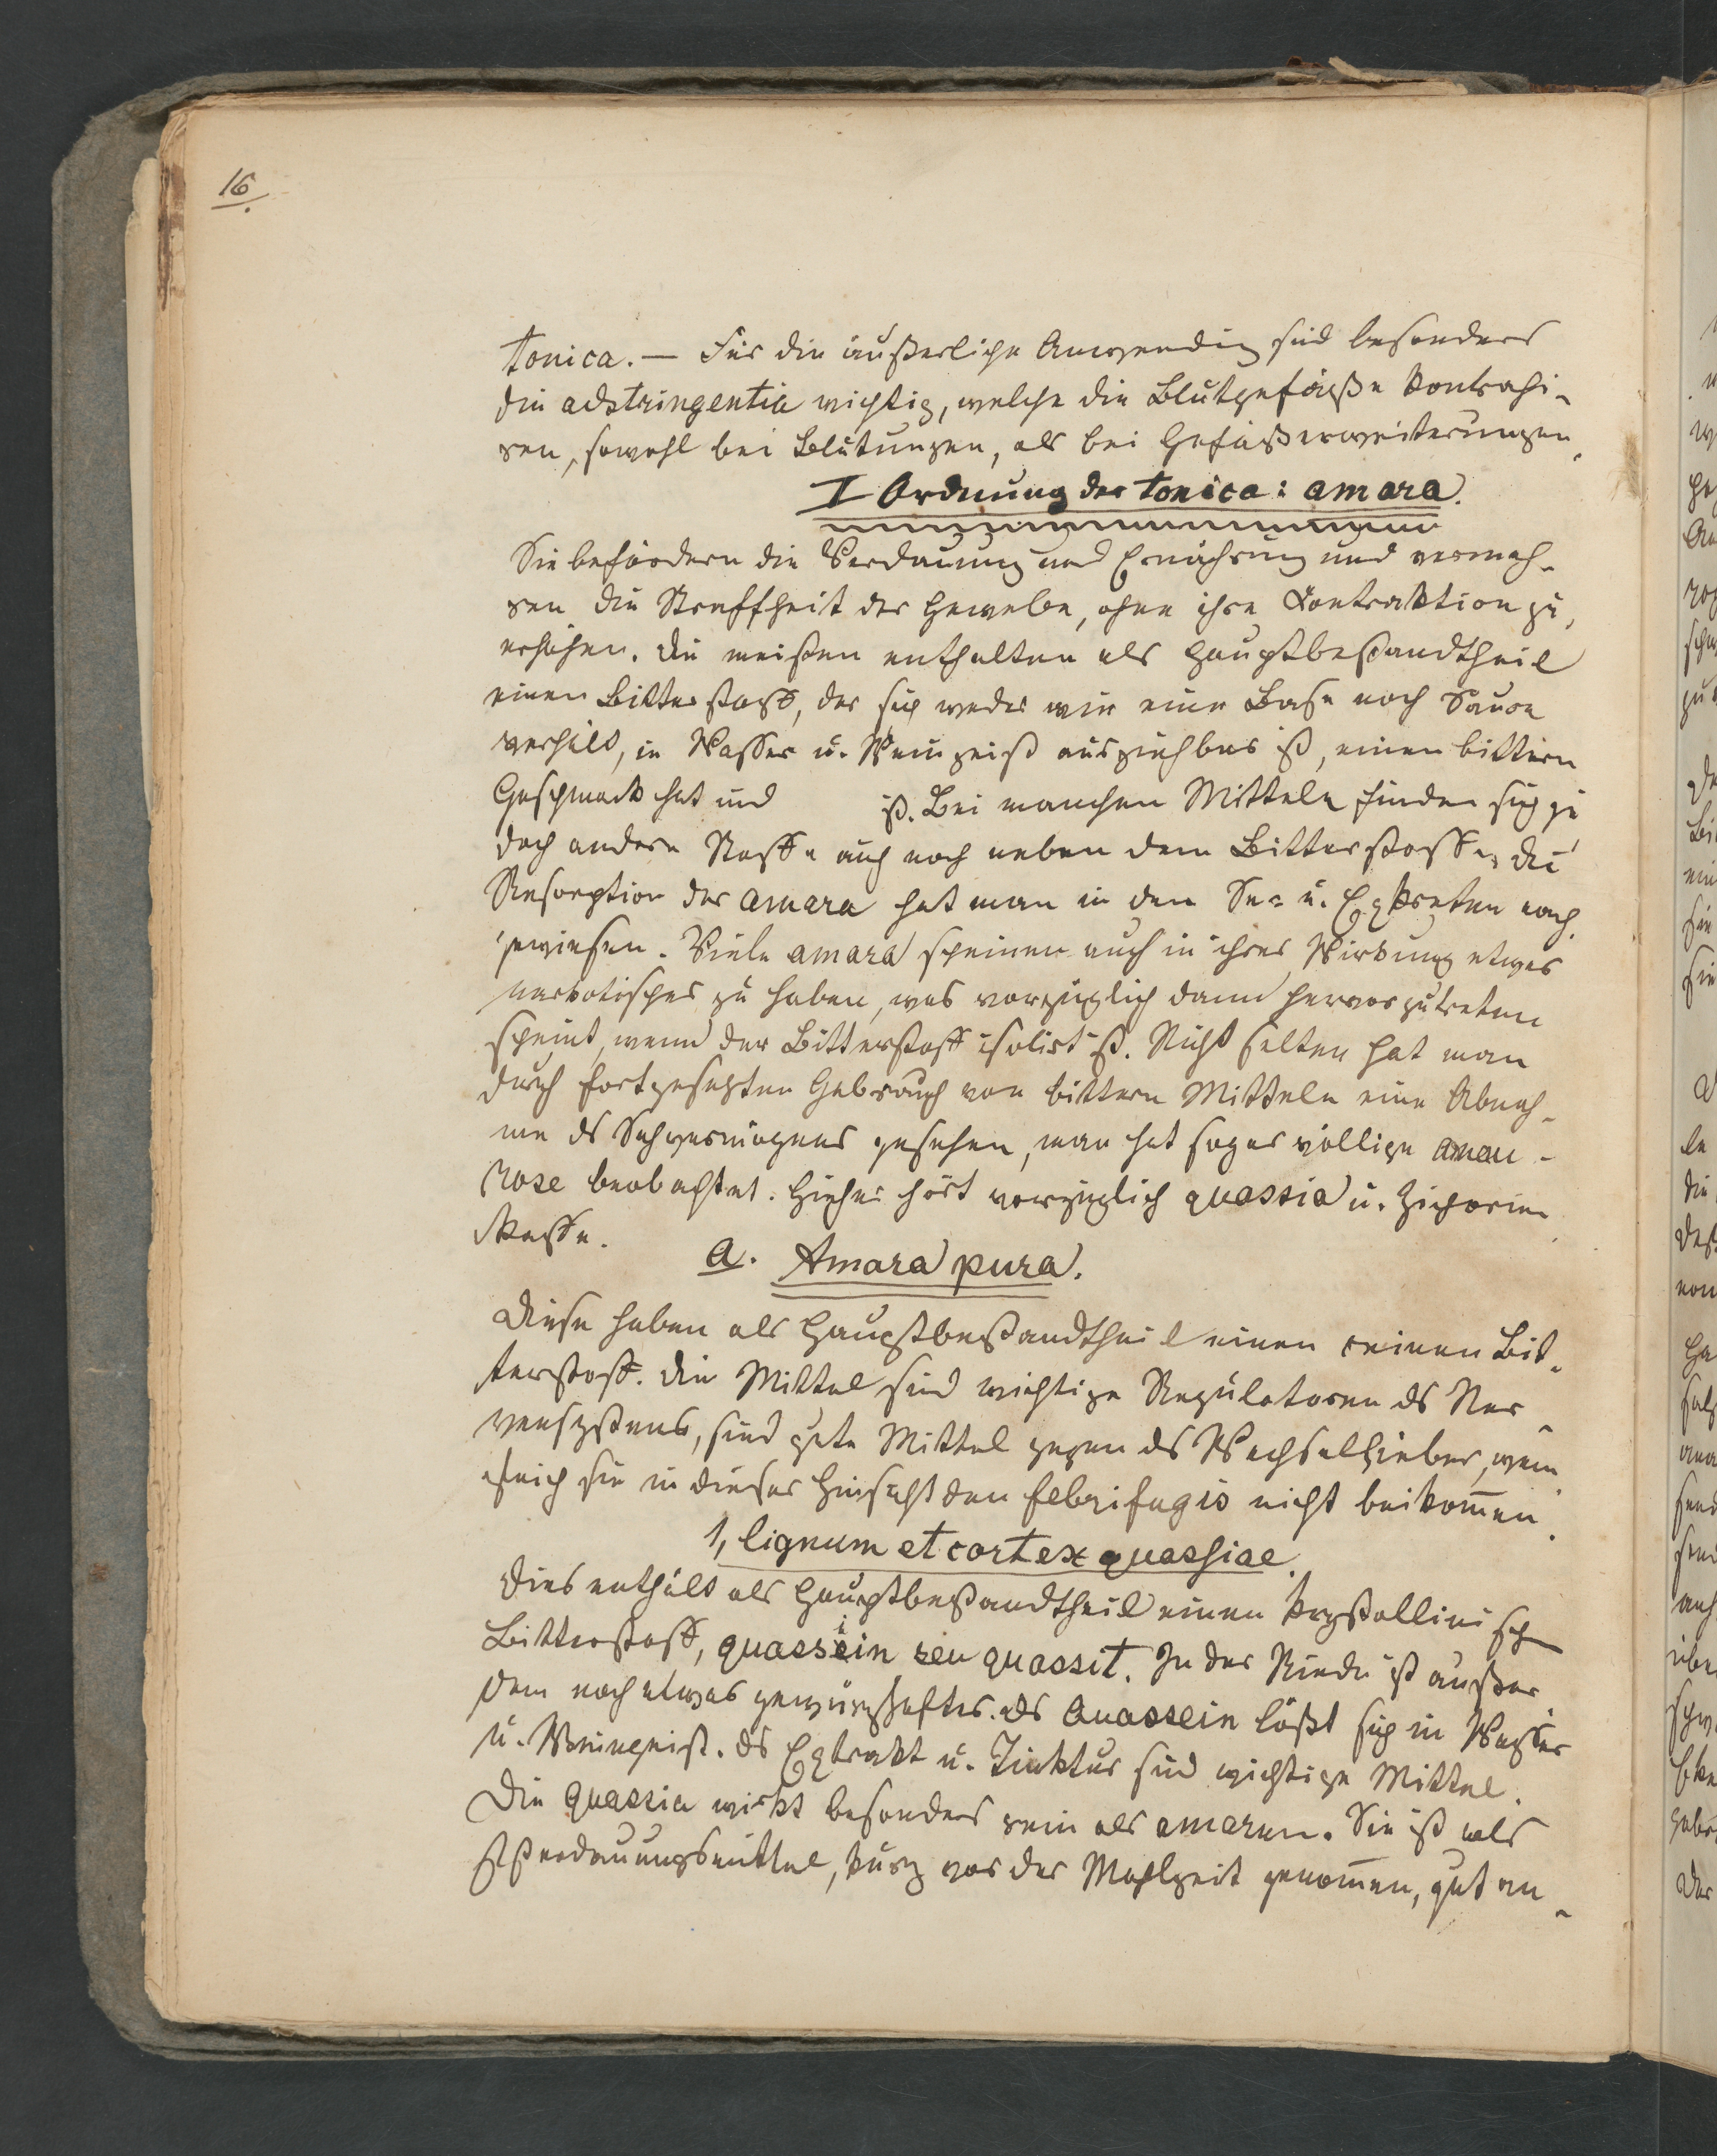 16.
tonica. — Für die äußerliche Anwendung sind besonders
die adstringentia wichtig, welche die Blutgefäße kontrahi-
ren, sowohl bei Blutungen, als bei Gefäßerweiterungen.
I Ordnung der tonica: amara.
Sie befördern die Verdauung und Ernährung und vermeh-
ren die Straffheit der Gewebe, ohne ihre Contraktion zu
erhöhen. Die meisten enthalten als Hauptbestandtheil
einen Bitterstoff, der sich weder wie eine Base noch Säure
verhält, in Wasser u. Weingeist ausziehbar ist, einen bittern
Geschmack hat und ist. Bei manchen Mitteln finden sich je
doch andere Stoffe auch noch neben dem Bitterstoffe. Die
Resorption der amara hat man in den Se= u. Exkreten nach
gewiesen. Viele amara scheinen auch in ihrer Wirkung etwas
narkotisches zu haben, was vorzüglich dann hervorzutreten
scheint, wenn der Bitterstoff isolirt ist. Nicht selten hat man
durch fortgesetzten Gebrauch von bittern Mitteln eine Abnah-
me ds Sehvermögens gesehen, man hat sogar völlige amau-
rose beobachtet. Hieher hört vorzüglich quassia u. Zichorien
kaffe.
a. Amara pura.
Diese haben als Hauptbestandtheil einen reinen Bit-
terstoff. Die Mittel sind wichtige Regulatoren ds Ner-
vensystems, sind gute Mittel gegen ds Wechselfieber, wenn
gleich sie in dieser Hinsicht den febrifugis nicht beikom̅en.
1, lignum et cortex quassiae.
Dies enthält als Hauptbestandtheil einen krystallinisch
Bitterstoff, quassiin seu quassit. In der Rinde ist außer
dem noch etwas gewürzhaftes. ds Quassein lößt sich in Wasser
u. Weingeist. ds Extrakt u. Tinktur sind wichtige Mittel.
Die quassia wirkt besonders rein als amarum. Sie ist als
Verdauungsmittel, kurz vor der Mahlzeit genom̅en, gut an-